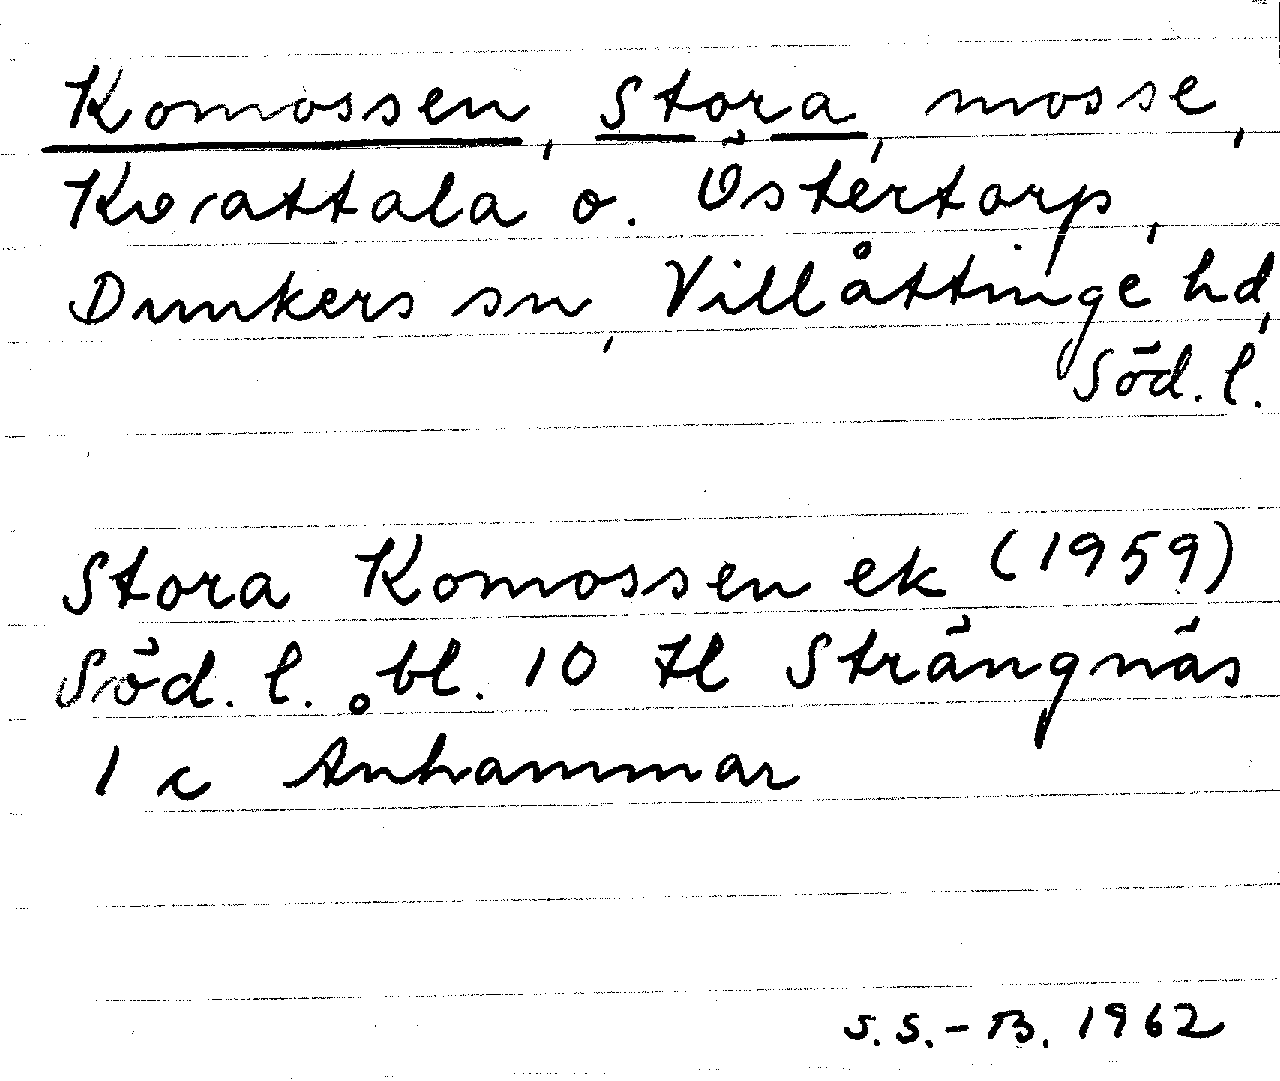 Komossen, Stora, mosse,
Korattala o. Östertorp,
Dunkers sn, Villåttinge hd,
Söd. l.
Stora Komossen ek (1959)
Söd. l. bl. 10 tl Strängnäs
1 c Ånhammar
S. S.-B. 1962